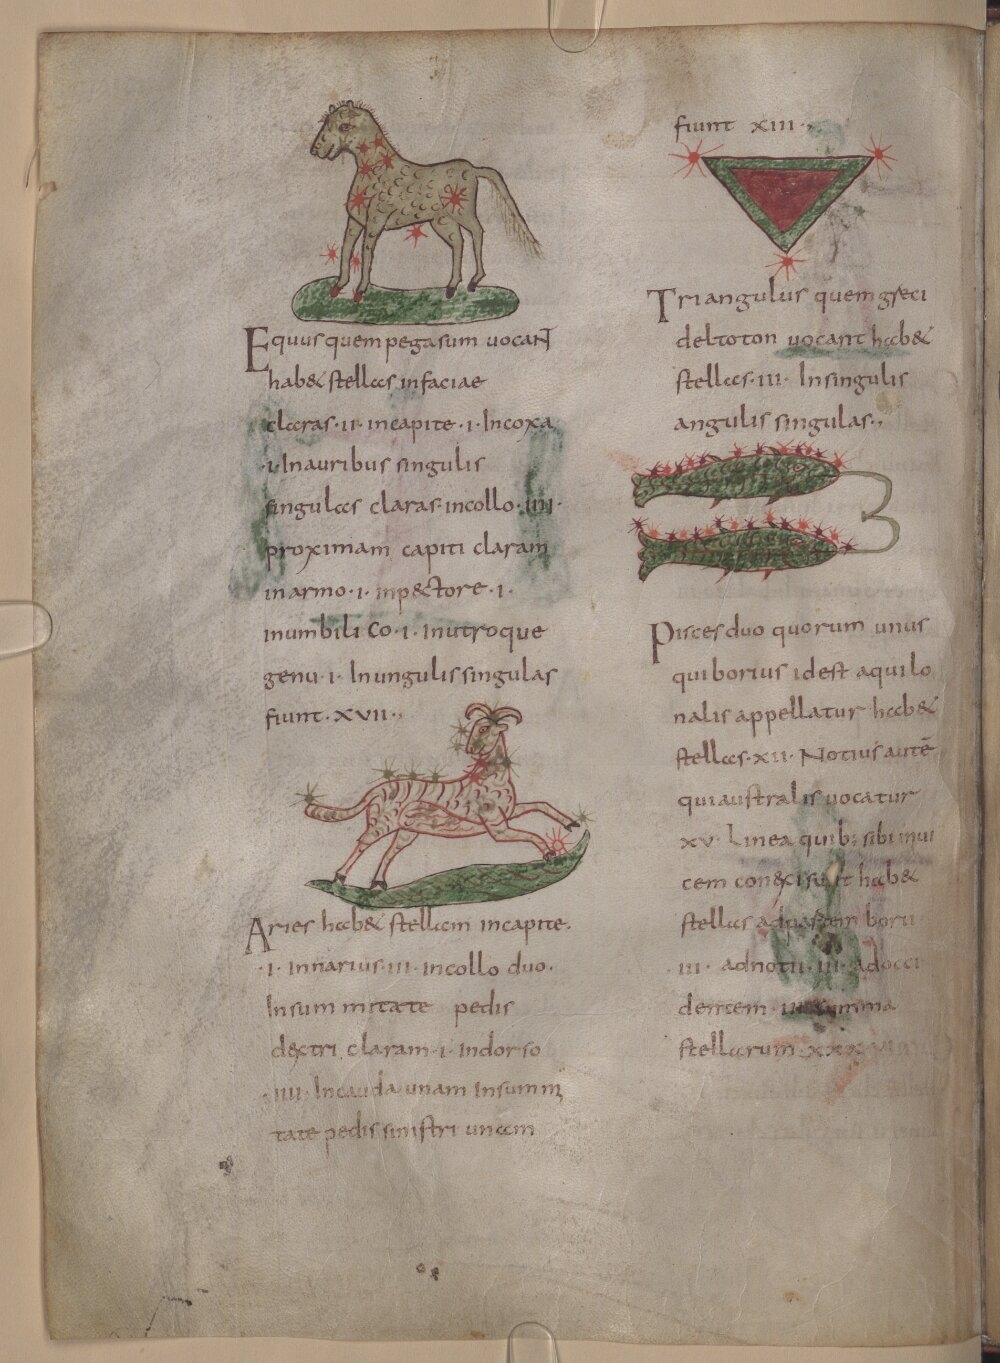 Equus quem pegasum vocant
hab& stellas infaciae
claras·ii· incapite·i· Incoxa
·i· Inauribus singulis
singulas claras· incollo·iiii·
proximam capiti claram
inarmo·i· inp&ctore·i·
inumbilico·i· Inutroque
genu·i· Inungulis singulas
fiunt·xvii·
Aries hab& stellam incapite·
·i· Innarius·iii· incollo duo·
Insummitate pedis
dextri claram·i· Indorso
·iiii· Incauda unam Insummi
tate pedis sinistri unam
fiunt xiii·
Triangulus quem greci
deltoton vocant hab&
stellas·iii· Insingulis
angulis singulas·
Pisces duo quorum unus
qui borius id est aquilo
nalis appellatur hab&
stellas·xii· Notius autē
qui australis vocatur
xv· Linea quib; sibi invi
cem conexi sunt hab&
stellas adpartem borii
·iii· adnotii·iii· adocci
dentem·iii· summa
stellarum·